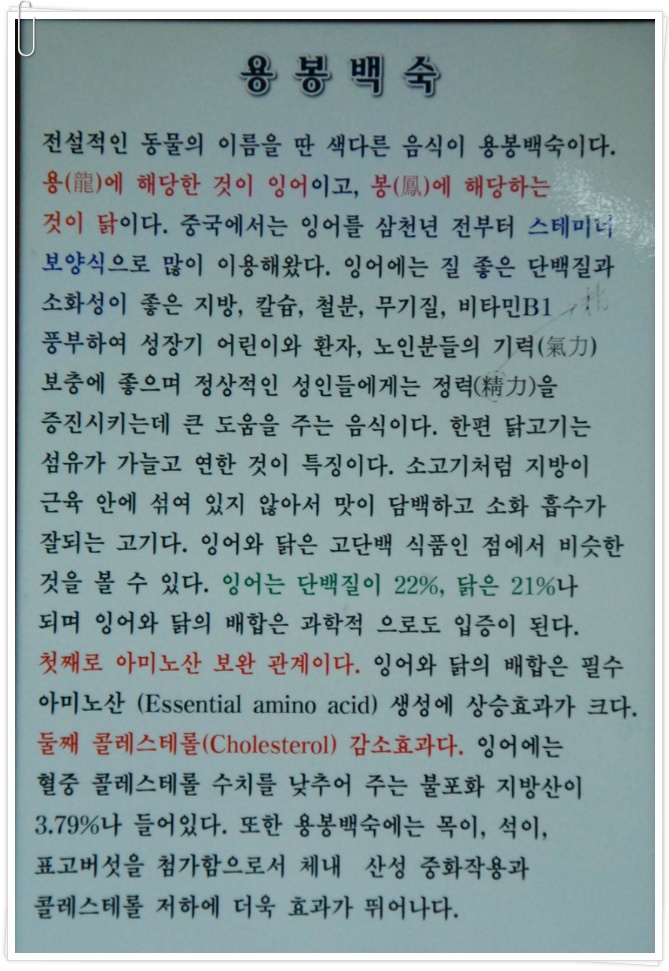 용봉백숙
전설적인 동물의 이름을 딴 색다른 음식이 용봉백숙이다.
용(龍)에 해당한 것이 잉어이고, 봉(鳳)에 해당하는
것이 닭이다. 중국에서는 잉어를 삼천년 전부터 스테미너
보양식으로 많이 이용해왔다. 잉어에는 질 좋은 단백질과
소화성이 좋은 지방, 칼슘, 철분, 무기질, 비타민B1
풍부하여 성장기 어린이와 환자, 노인분들의 기력(氣力)
보충에 좋으며 정상적인 성인들에게는 정력(精力)을
증진시키는데 큰 도움을 주는 음식이다. 한편 닭고기는
섬유가 가늘고 연한 것이 특징이다. 소고기처럼 지방이
근육 안에 섞여 있지 않아서 맛이 담백하고 소화 흡수가
잘되는 고기다. 잉어와 닭은 고단백 식품인 점에서 비슷한
것을 볼 수 있다. 잉어는 단백질이 22%, 닭은 21%나
되며 잉어와 닭의 배합은 과학적 으로도 입증이 된다.
첫째로 아미노산 보완 관계이다. 잉어와 닭의 배합은 필수
아미노산 (Essential amino acid) 생성에 상승효과가 크다.
둘째 콜레스테롤(Cholesterol) 감소효과다. 잉어에는
혈중 콜레스테롤 수치를 낮추어 주는 불포화 지방산이
3.79%나 들어있다. 또한 용봉백숙에는 목이, 석이,
표고버섯을 첨가함으로서 체내 산성 중화작용과
콜레스테롤 저하에 더욱 효과가 뛰어나다.